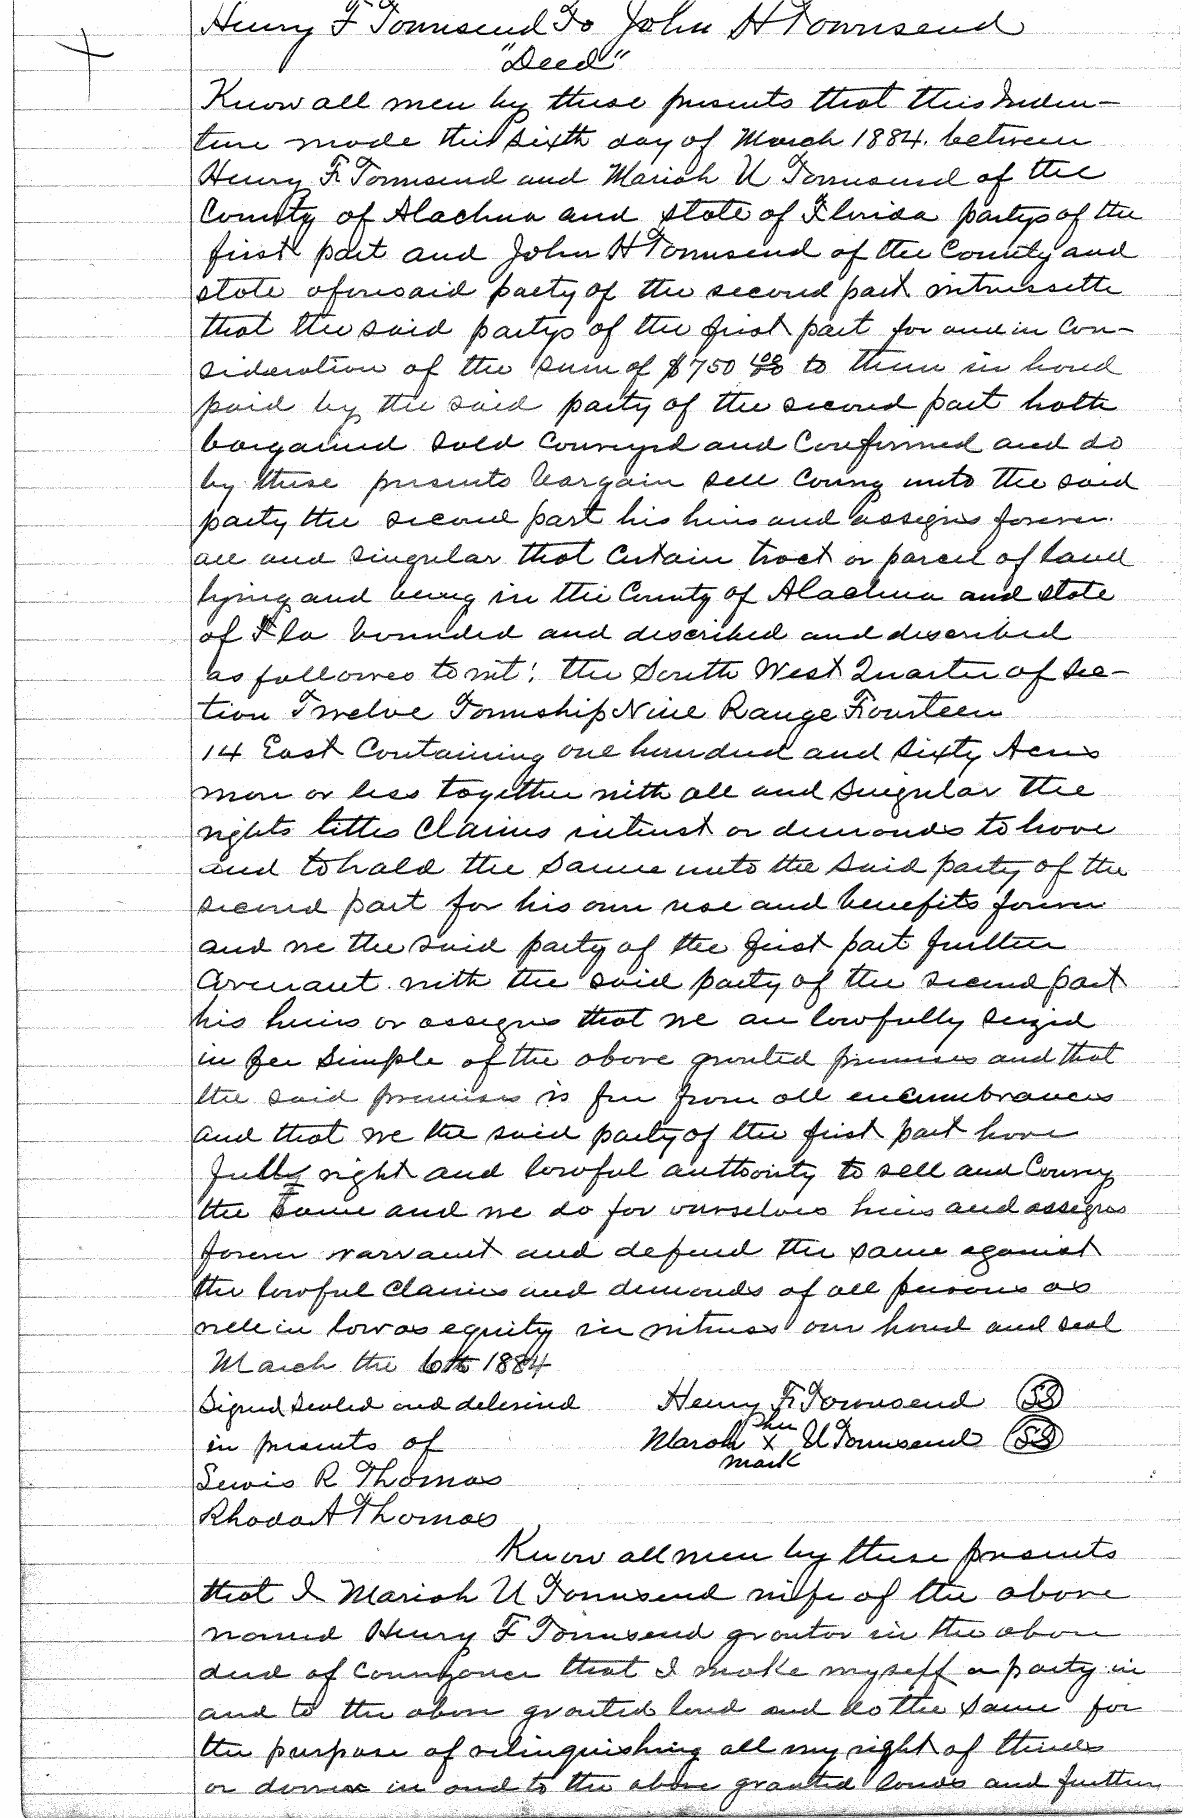 Henry F Townsend To John H Townsend
"Deed"
Know all men by these presents that this Inden-
ture made this sixth day of March 1884. between
Henry F. Townsend and Mariah U Townsend of the
County of Alachua and state of Florida partys of the
first part and John H Townsend of the County and
state aforesaid party of the second part witnesseth
that the said partys of the first part for and in Con-
sideration of the sum of $750 00/00 to them in hand
paid by the said party of the second part hath
bargained sold Conveyed and Confirmed and do
by these presents bargain sell Convey unto the said
party the second part his heirs and assigns forever.
all and singular that certain tract or parcel of land
lying and being in the County of Alachua and state
of Fla bounded and described and described
as followes to wit: the South West Quarter of Sec-
tion Twelve Township Nine Range Fourteen
14 East Containing one hundred and sixty Acres
more or less together with all and singular the
rights titles Claims intrust or demands to have
and to hold the same unto the said party of the
second part for his own use and benefits forever
and we the said party of the first part further
Covenant with the said party of the second part
his heirs or assigns that we are lawfully seized
in fee simple of the above granted premises and that
the said premises is free from all encumbrances
and that we the said party of the first part have
fully right and lawful authority to sell and Convey
the same and we do for ourselves heirs and assigns
forever warrant and defend the same against
the lawful claims and demands of all persons as
well in law as equity in witness our hand and seal
March the 6th 1884
Signed sealed and delivered Henry F. Townsend SS
in presents of Mariah her x mark U Townsend SS
Lewis R Thomas
Rhoda A Thomas
Know all men by these presents
that I Mariah U Townsend wife of the above
named Henry F Townsend grantor in the above
deed of Conveyance that I make myself a party in
and to the above granted land and do the same for
the purpose of relinquishing all my right of thirds
or dower in and to the above granted lands and further